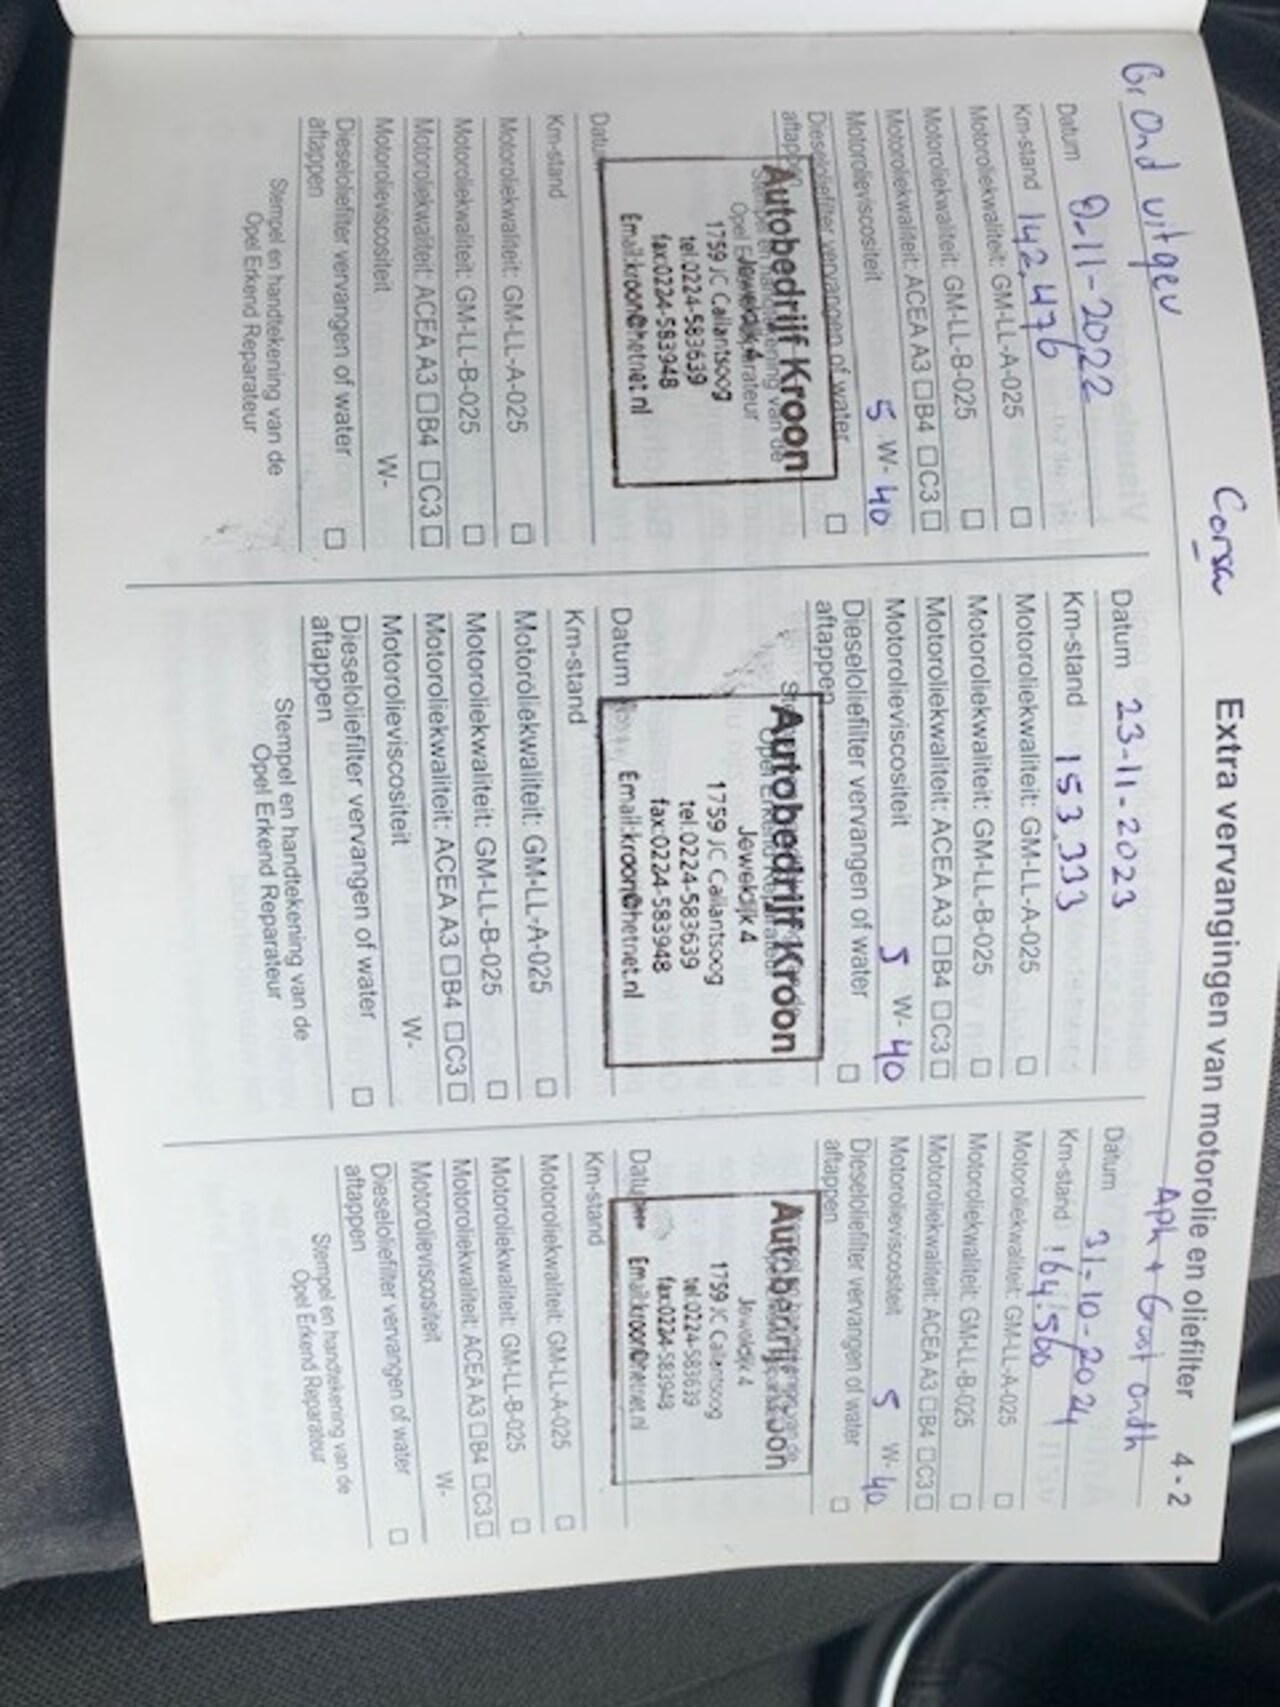 Corsa
Extra vervangingen van motorolie en oliefilter 4 - 2
Gr Ond uitgev
Datum 9-11-2022
Km-stand 142.476
Motoroliekwaliteit: GM-LL-A-025 ☐
Motoroliekwaliteit: GM-LL-B-025 ☐
Motoroliekwaliteit: ACEA A3 ☐B4 ☐C3 ☐
Motorolieviscositeit 5 W- 40
Dieseloliefilter vervangen of water ☐
aftappen
Autobedrijf Kroon
Jewekdijk 4
1759 JC Callantsoog
tel.0224-583639
fax:0224-583948
Email:kroon@hetnet.nl
Datum
Km-stand
Motoroliekwaliteit: GM-LL-A-025 ☐
Motoroliekwaliteit: GM-LL-B-025 ☐
Motoroliekwaliteit: ACEA A3 ☐B4 ☐C3 ☐
Motorolieviscositeit W-
Dieseloliefilter vervangen of water ☐
aftappen
Stempel en handtekening van de
Opel Erkend Reparateur
Datum 23-11-2023
Km-stand 153.333
Motoroliekwaliteit: GM-LL-A-025 ☐
Motoroliekwaliteit: GM-LL-B-025 ☐
Motoroliekwaliteit: ACEA A3 ☐B4 ☐C3 ☐
Motorolieviscositeit 5 W- 40
Dieseloliefilter vervangen of water ☐
aftappen
Autobedrijf Kroon
Jewekdijk 4
1759 JC Callantsoog
tel.0224-583639
fax:0224-583948
Email:kroon@hetnet.nl
Datum
Km-stand
Motoroliekwaliteit: GM-LL-A-025 ☐
Motoroliekwaliteit: GM-LL-B-025 ☐
Motoroliekwaliteit: ACEA A3 ☐B4 ☐C3 ☐
Motorolieviscositeit W-
Dieseloliefilter vervangen of water ☐
aftappen
Stempel en handtekening van de
Opel Erkend Reparateur
Apk + Groot ondh
Datum 31-10-2024
Km-stand 164.560
Motoroliekwaliteit: GM-LL-A-025 ☐
Motoroliekwaliteit: GM-LL-B-025 ☐
Motoroliekwaliteit: ACEA A3 ☐B4 ☐C3 ☐
Motorolieviscositeit 5 W- 40
Dieseloliefilter vervangen of water ☐
aftappen
Autobedrijf Kroon
Jewekdijk 4
1759 JC Callantsoog
tel.0224-583639
fax:0224-583948
Email:kroon@hetnet.nl
Datum
Km-stand
Motoroliekwaliteit: GM-LL-A-025 ☐
Motoroliekwaliteit: GM-LL-B-025 ☐
Motoroliekwaliteit: ACEA A3 ☐B4 ☐C3 ☐
Motorolieviscositeit W-
Dieseloliefilter vervangen of water ☐
aftappen
Stempel en handtekening van de
Opel Erkend Reparateur